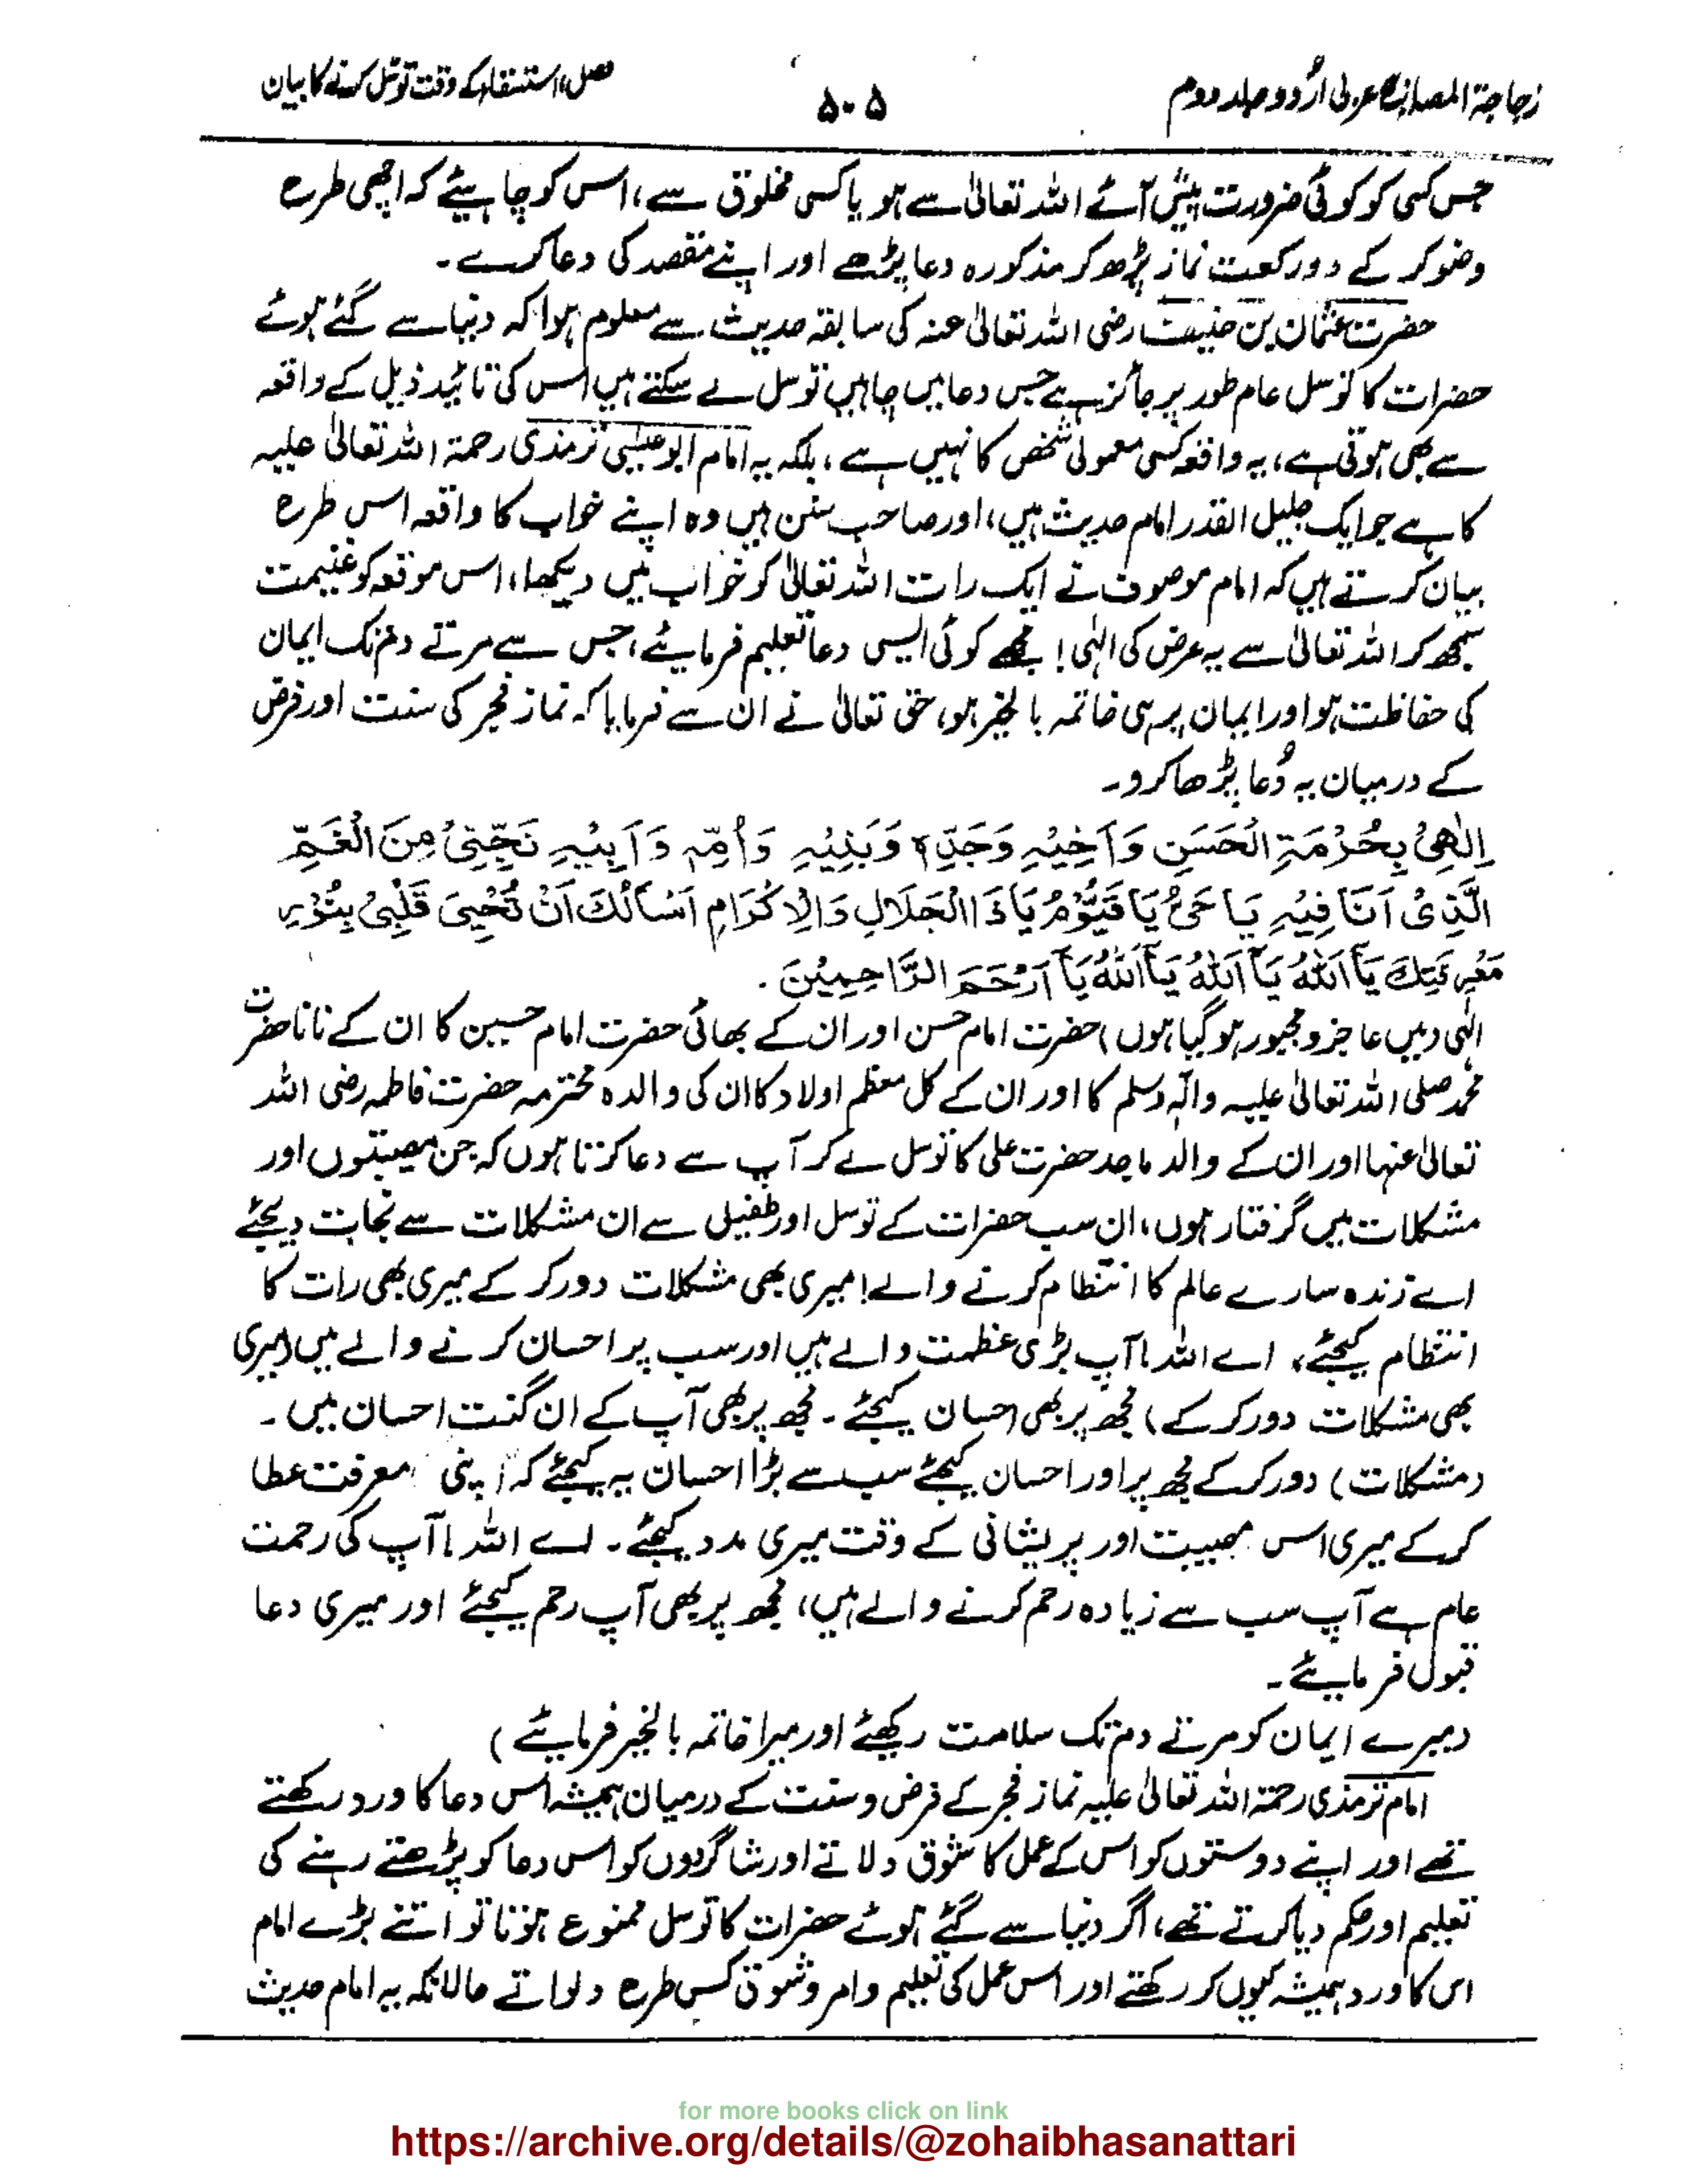 زجاجۃ المصابیح عربی اُردو جلد دوم
۵۰۵
فصل، استسقاء کے وقت توسّل کرنے کا بیان
جس کسی کو کوئی ضرورت پیش آئے اللہ تعالیٰ سے ہو یا کسی مخلوق سے، اس کو چاہیئے کہ اچھی طرح
وضو کر کے دو رکعت نماز پڑھ کر مذکورہ دعا پڑھے اور اپنے مقصد کی دعا کرے۔
حضرت عثمان بن حنیف رضی اللہ تعالیٰ عنہ کی سابقہ حدیث سے معلوم ہوا کہ دنیا سے گئے ہوئے
حضرات کا توسل عام طور پر جائز ہے جس دعا میں چاہیں توسل لے سکتے ہیں اس کی تائید ذیل کے واقعہ
سے بھی ہوتی ہے، یہ واقعہ کسی معمولی شخص کا نہیں ہے، بلکہ یہ امام ابو عیسٰی ترمذی رحمۃ اللہ تعالیٰ علیہ
کا ہے جو ایک جلیل القدر امام حدیث ہیں، اور صاحب سنن ہیں وہ اپنے خواب کا واقعہ اس طرح
بیان کرتے ہیں کہ امام موصوف نے ایک رات اللہ تعالیٰ کو خواب میں دیکھا، اس موقعہ کو غنیمت
سمجھ کر اللہ تعالیٰ سے یہ عرض کی الٰہی! مجھے کوئی ایسی دعا تعلیم فرمایئے، جس سے مرتے دم تک ایمان
کی حفاظت ہو اور ایمان پر ہی خاتمہ بالخیر ہو، حق تعالیٰ نے ان سے فرمایا کہ نماز فجر کی سنت اور فرض
کے درمیان یہ دُعا پڑھا کرو۔
اِلٰھِیْ بِحُرْمَۃِ الْحَسَنِ وَاَخِیْہِ وَجَدِّہٖ وَبَنِیْہِ وَاُمِّہٖ وَاَبِیْہِ نَجِّنِیْ مِنَ الْغَمِّ
الَّذِیْ اَنَا فِیْہِ یَا حَیُّ یَا قَیُّوْمُ یَا ذَا الْجَلَالِ وَالْاِکْرَامِ اَسْاَلُکَ اَنْ تُحْیِیَ قَلْبِیْ بِنُوْرِ
مَعْرِفَتِکَ یَا اَللّٰہُ یَا اَللّٰہُ یَا اَللّٰہُ یَا اَرْحَمَ الرَّاحِمِیْنَ.
الٰہی (میں عاجز و مجبور ہو گیا ہوں) حضرت امام حسن اور ان کے بھائی حضرت امام حسین کا ان کے نانا حضرت
محمد صلی اللہ تعالیٰ علیہ وآلہٖ وسلم کا اور ان کے کل معظم اولاد کا ان کی والدہ محترمہ حضرت فاطمہ رضی اللہ
تعالیٰ عنہا اور ان کے والد ماجد حضرت علی کا توسل لے کر آپ سے دعا کرتا ہوں کہ جن مصیبتوں اور
مشکلات میں گرفتار ہوں، ان سب حضرات کے توسل اور طفیل سے ان مشکلات سے نجات دیجئے
اے زندہ سارے عالم کا انتظام کرنے والے! میری بھی مشکلات دور کر کے میری بھی رات کا
انتظام کیجئے، اے اللہ! آپ بڑی عظمت والے ہیں اور سب پر احسان کرنے والے ہیں (میری
بھی مشکلات دور کر کے) مجھ پر بھی احسان کیجئے۔ مجھ پر بھی آپ کے ان گنت احسان ہیں۔
(مشکلات) دور کر کے مجھ پر اور احسان کیجئے سب سے بڑا احسان یہ کیجئے کہ اپنی معرفت عطا
کر کے میری اس مصیبت اور پریشانی کے وقت میری مدد کیجئے۔ اے اللہ! آپ کی رحمت
عام ہے آپ سب سے زیادہ رحم کرنے والے ہیں، مجھ پر بھی آپ رحم کیجئے اور میری دعا
قبول فرمایئے۔
(میرے ایمان کو مرتے دم تک سلامت رکھئے اور میرا خاتمہ بالخیر فرمایئے)
امام ترمذی رحمۃ اللہ تعالیٰ علیہ نماز فجر کے فرض و سنت کے درمیان ہمیشہ اس دعا کا ورد رکھتے
تھے اور اپنے دوستوں کو اس کے عمل کا شوق دلاتے اور شاگردوں کو اس دعا کو پڑھتے رہنے کی
تعلیم اور حکم دیا کرتے تھے، اگر دنیا سے گئے ہوئے حضرات کا توسل ممنوع ہوتا تو اتنے بڑے امام
اس کا ورد ہمیشہ کیوں کر رکھتے اور اس عمل کی تعلیم و امر و شوق کس طرح دلواتے حالانکہ یہ امام حدیث
for more books click on link
https://archive.org/details/@zohaibhasanattari